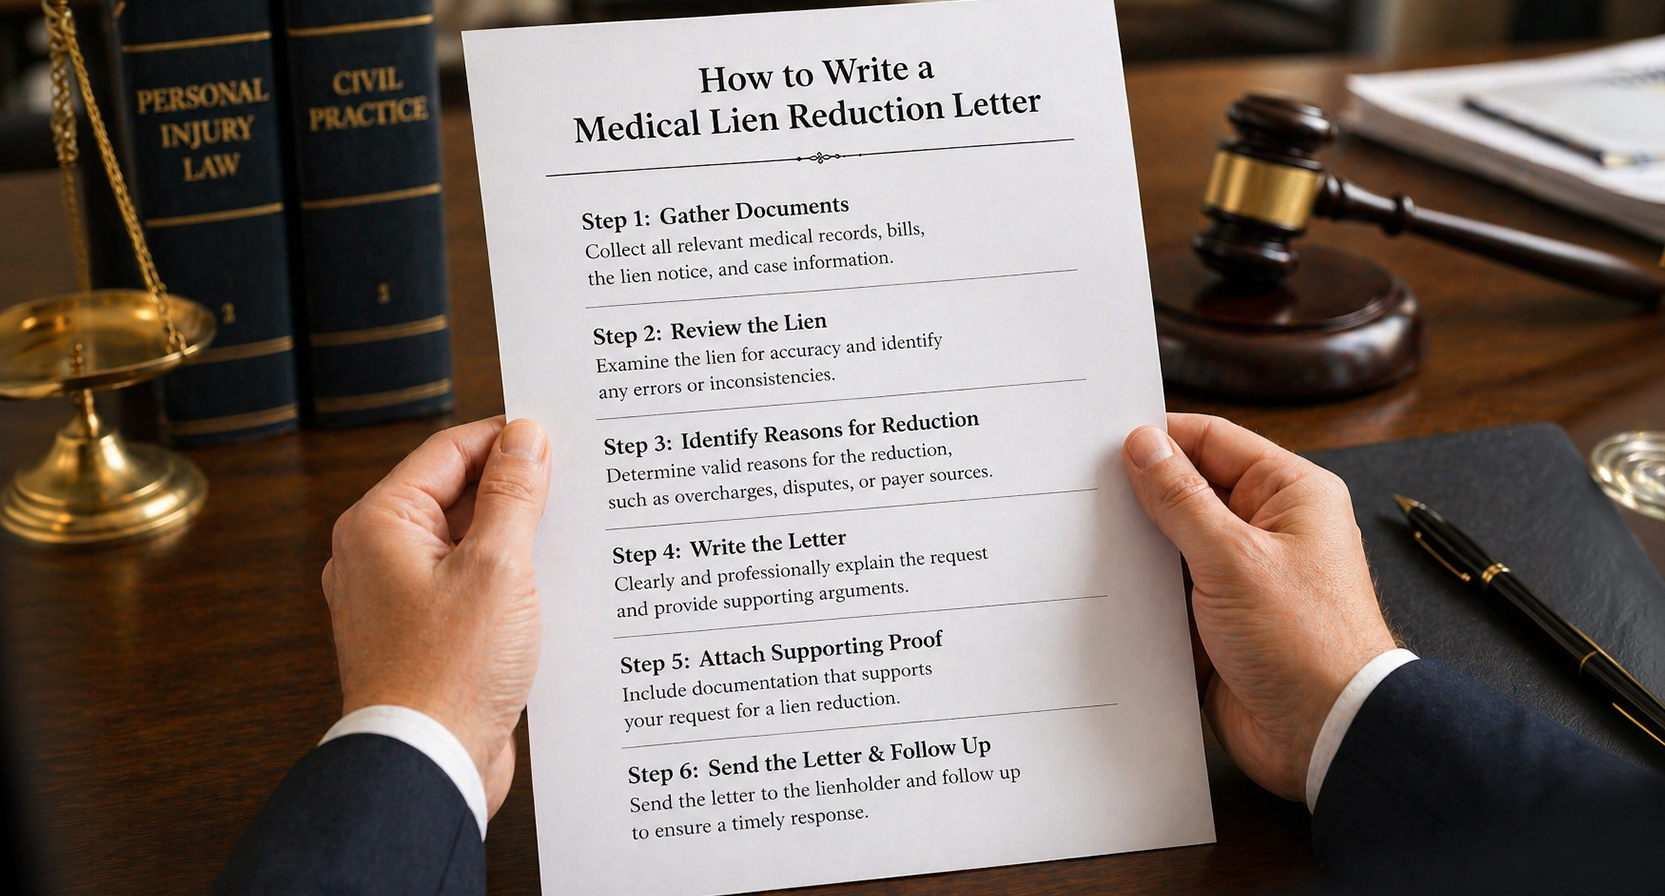 PERSONAL
INJURY
LAW
CIVIL
PRACTICE
How to Write a
Medical Lien Reduction Letter
Step 1: Gather Documents
Collect all relevant medical records, bills,
the lien notice, and case information.
Step 2: Review the Lien
Examine the lien for accuracy and identify
any errors or inconsistencies.
Step 3: Identify Reasons for Reduction
Determine valid reasons for the reduction,
such as overcharges, disputes, or payer sources.
Step 4: Write the Letter
Clearly and professionally explain the request
and provide supporting arguments.
Step 5: Attach Supporting Proof
Include documentation that supports
your request for a lien reduction.
Step 6: Send the Letter & Follow Up
Send the letter to the lienholder and follow up
to ensure a timely response.